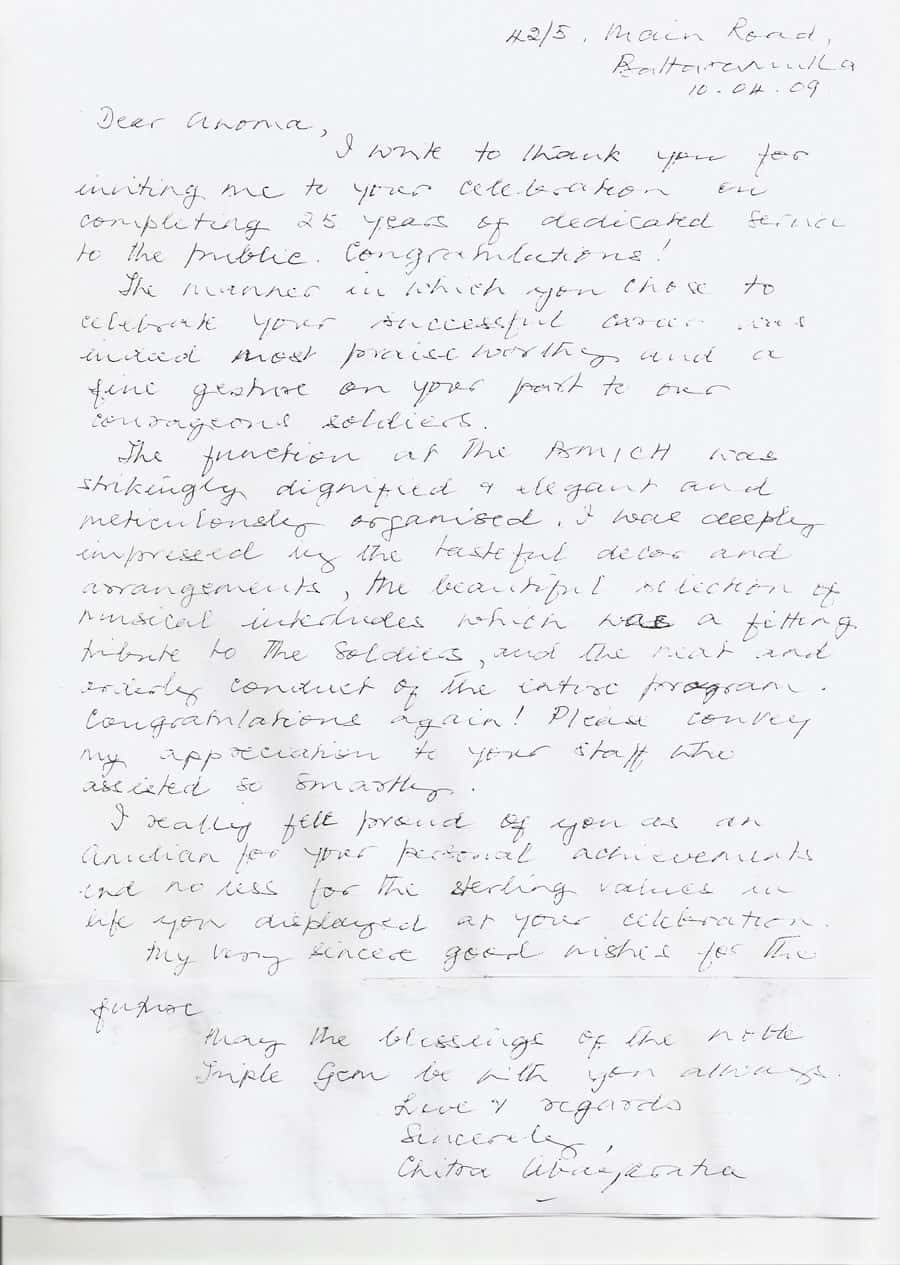 42/5, Main Road,
Battaramulla
10.04.09
Dear Anoma,
I write to thank you for
inviting me to your celebration on
completing 25 years of dedicated service
to the public. Congratulations!
The manner in which you chose to
celebrate your successful career was
indeed most praiseworthy and a
fine gesture on your part to our
courageous soldiers.
The function at the BMICH was
strikingly dignified & elegant and
meticulously organised. I was deeply
impressed by the tasteful decor and
arrangements, the beautiful selection of
musical interludes which was a fitting
tribute to the soldiers, and the neat and
orderly conduct of the entire program.
Congratulations again! Please convey
my appreciation to your staff who
assisted so smartly.
I really felt proud of you as an
for your personal achievements
and no less for the sterling values in
life you displayed at your celebration.
My very sincere good wishes for the
future
May the blessings of the noble
Triple Gem be with you always.
Love & regards
Sincerely,
Chitra